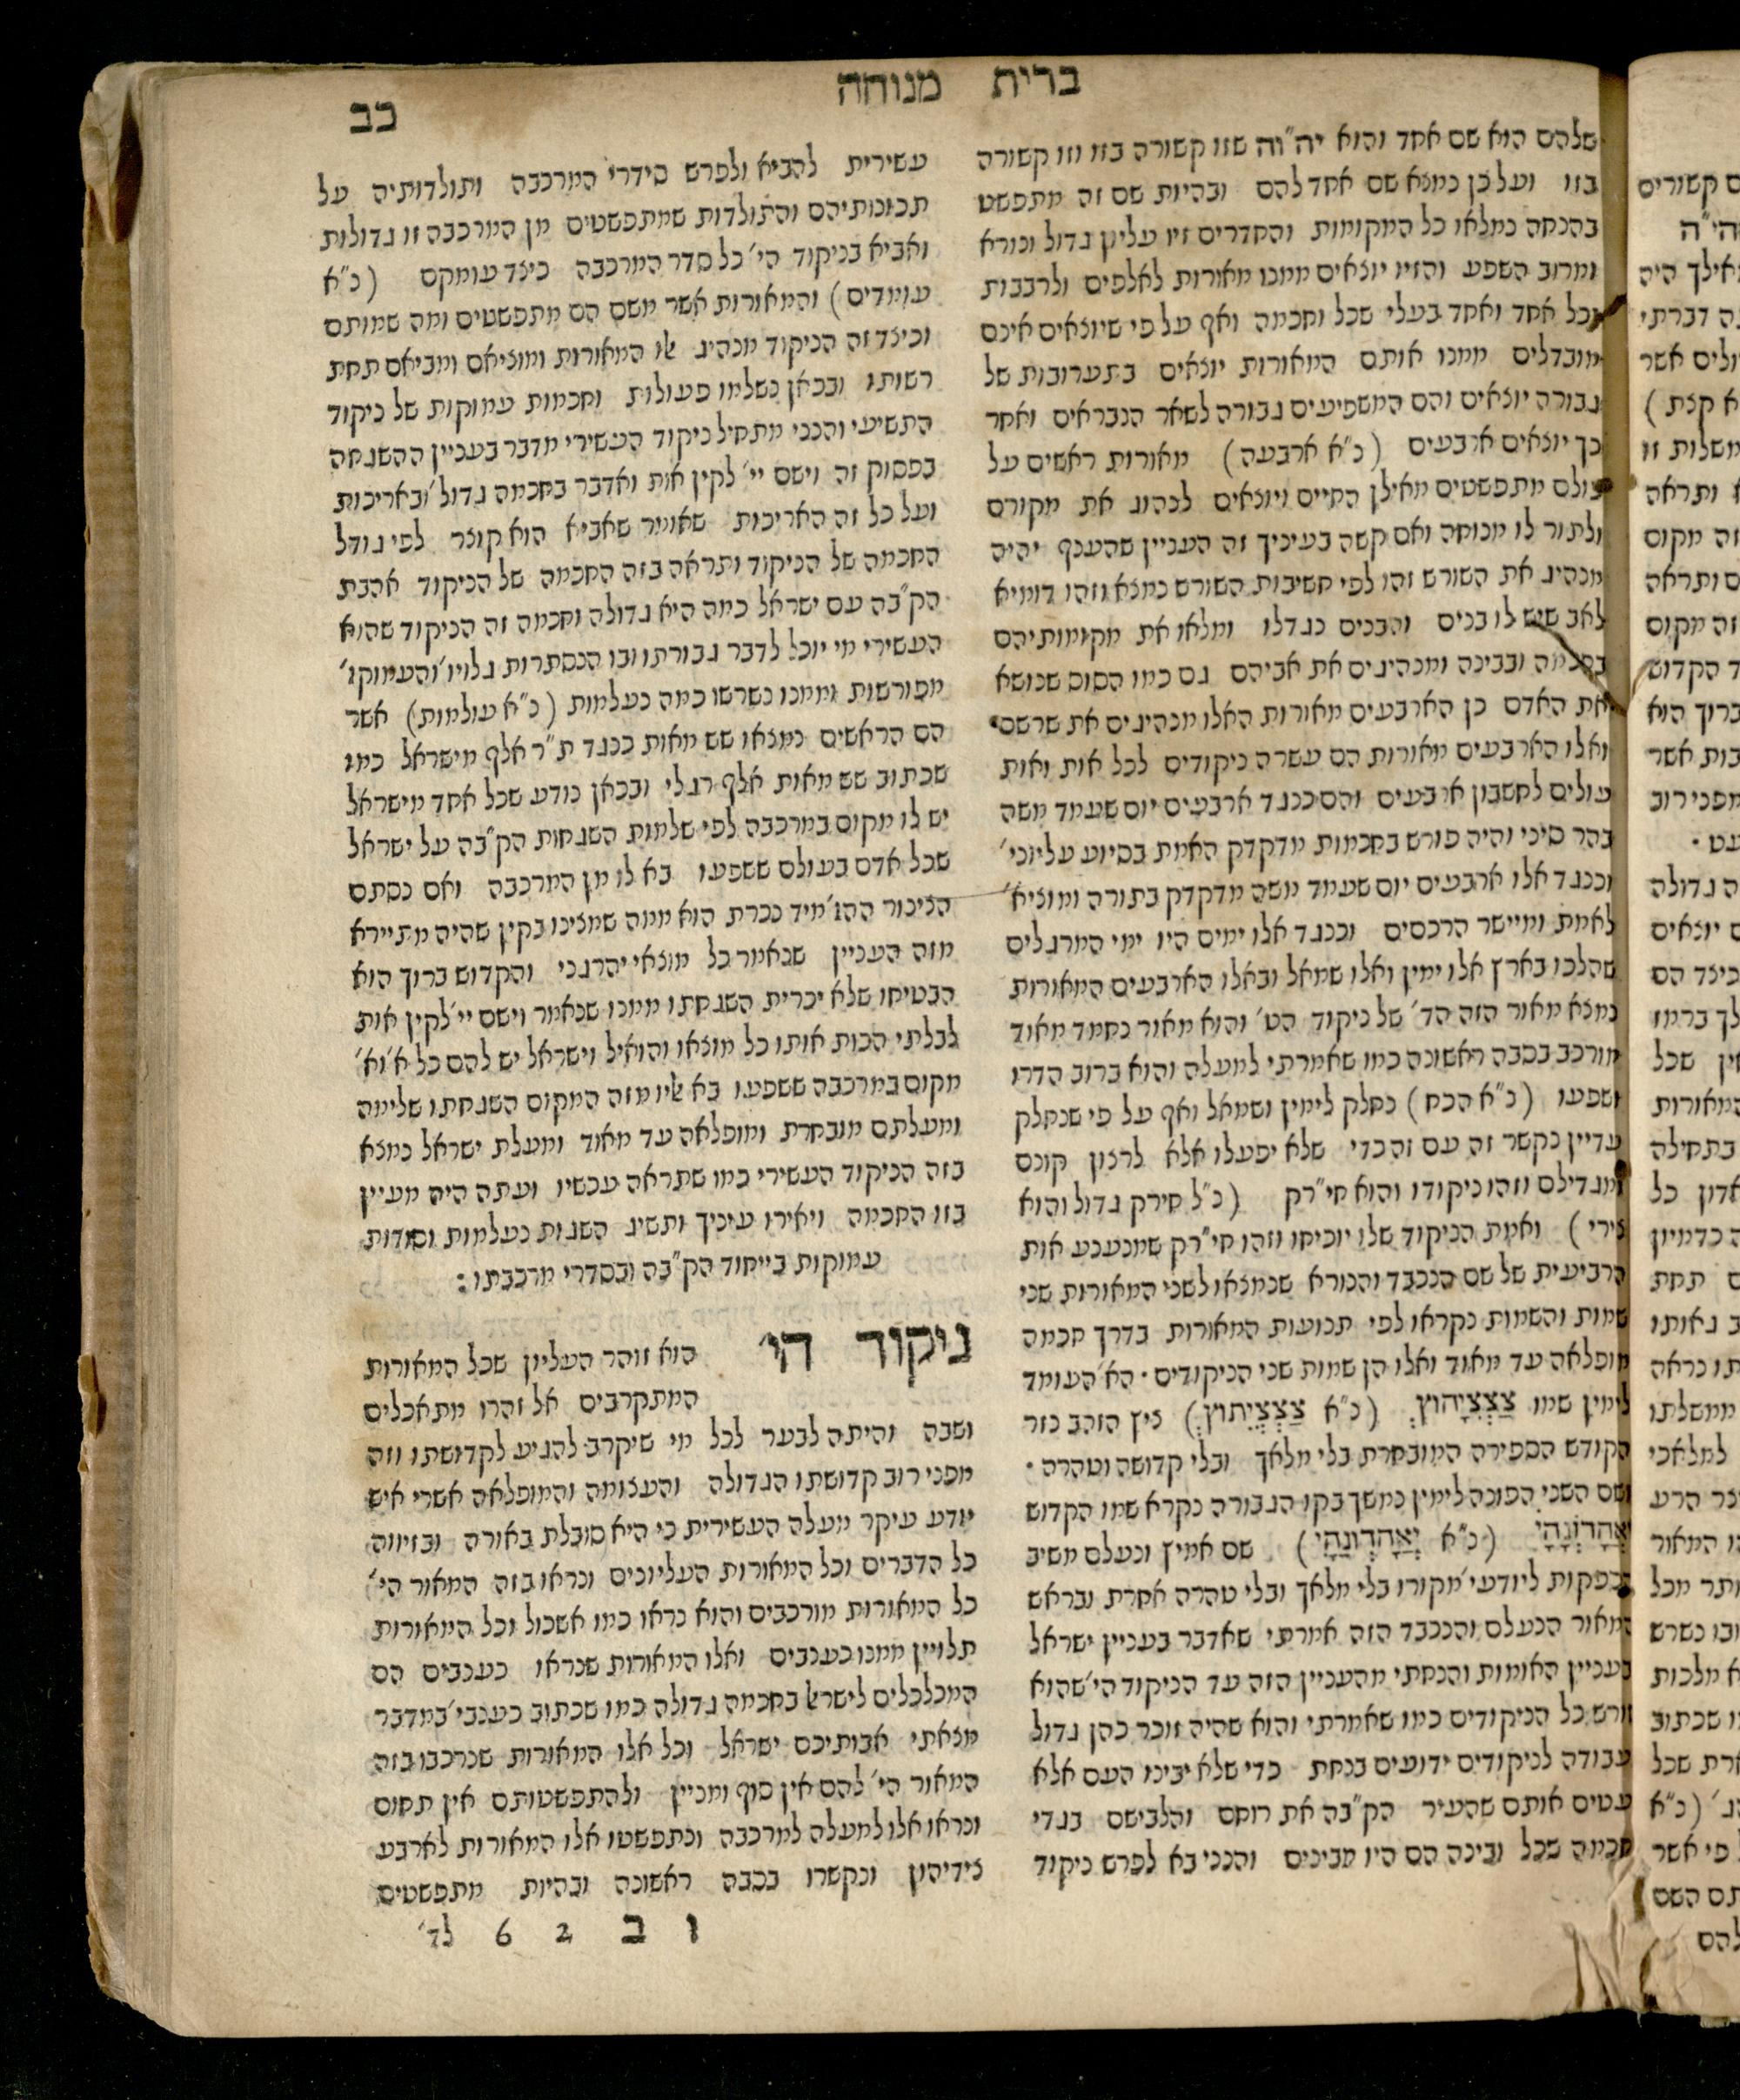 ברית מנוחה
כב
שלהם הוא שם אחד והוא יה"וה שזו קשורה בזו וזו קשורה
בזו ועל כן נמצא שם אחד להם ובהיות שם זה מתפשט
בהכחה נמלאו כל המקומות והחדרים זיו עליון גדול ונורא
ומרוב השפע והזיו יוצאים ממנו מאורות לאלפים ולרבבות
וכל אחד ואחד בעלי שכל וחכמה ואף על פי שיוצאים אינם
מובדלים ממנו אותם המאורות יוצאים בתערובות של
גבורה יוצאים והם המשפיעים גבורה לשאר הנבראים ואחר
כך יוצאים ארבעים (נ"א ארבעה) מאורות ראשים על
כולם מתפשטים מאילן החיים ויוצאים לנהוג את מקורם
ולתור לו מנוחה ואם קשה בעיניך זה העניין שהענף יהיה
מנהיג את השורש זהו לפי חשיבות השורש נמצא וזהו דומיא
לאב שיש לו בנים והבנים נגדלו ומלאו את מקומותיהם
בחכמה ובבינה ומנהיגים את אביהם גם כמו הסוס שנושא
את האדם כן הארבעים מאורות האלו מנהיגים את שרשם·
ואלו הארבעים מאורות הם עשרה ניקודים לכל אות ואות
עולים לחשבון ארבעים והם כנגד ארבעים יום שעמד משה
בהר סיני והיה פורש בחכמות מדקדק האמת בסיוע עליוני'
וכנגד אלו ארבעים יום שעמד משה מדקדק בתורה ומוציא'
לאמת ומיישר הרכסים וכנגד אלו ימים היו ימי המרגלים
שהלכו בארץ אלו ימין ואלו שמאל ובאלו הארבעים המאורות
נמצא מאור הזה הד' של ניקוד הט' והוא מאור נחמד מאוד
מורכב בסבה ראשונה כמו שאמרתי למעלה והוא ברוב הדרו
ושפעו (נ"א הכח) נחלק לימין ושמאל ואף על פי שנחלק
עדיין נקשר זה עם זה כדי שלא יפעלו אלא לרצון קונם
ומגדילם וזהו ניקודו והוא חי"רק (נ"ל חירק גדול והוא
צירי) ואמת הניקוד שלו יוכיחו וזהו חי"רק שמנענע אות
הרביעית של שם הנכבד והנורא שנמצאו לשני המאורות שני
שמות והשמות נקראו לפי תנועות המאורות בדרך חכמה
מופלאה עד מאוד ואלו הן שמות שני הניקודים· הא' העומד
לימין שמו צַצְצִיָהוּץְ (נ"א צַצְצֵיִתוּץְ) ציץ הזהב נזר
הקודש הספירה המובחרת בלי מלאך ובלי קדושה וטהרה·
ושם השני הפונה לימין נמשך בקו הגבורה נקרא שמו הקדוש
יְאַהְדְוָנָהָי (נ"א יְאַהְדְוּנַהָי) שם אמיץ ונעלם משיב
נפקות ליודעי' מקורו בלי מלאך ובלי טהרה אחרת ובראש
המאור הנעלם והנכבד הזה אמרתי שאדבר בעניין ישראל
בעניין האומות והנחתי מהעניין הזה עד הניקוד הי' שהוא
שורש כל הניקודים כמו שאמרתי והוא שהיה זוכר כהן גדול
עבודה לניקודים ידועים בנחת כדי שלא יבינו העם אלא
מעטים אותם שהעיר הק"בה את רוחם והלבישם בגדי
חכמה שכל ובינה הם היו מבינים והנני בא לפרש ניקוד
עשירית להביא ולפרש סידרי המרכבה ותולדותיה על
תכונותיהם והתולדות שמתפשטים מן המרכבה זו גדולות
ואביא בניקוד הי' כל סדר המרכבה כיצד עומקם (נ"א
עומדים) והמאורות אשר משם הם מתפשטים ומה שמותם
וכיצד זה הניקוד מנהיג אלו המאורות ומוציאם ומביאם תחת
רשותו ובכאן נשלמו פעולות וחכמות עמוקות של ניקוד
התשיעי והנני מתחיל ניקוד העשירי מדבר בעניין ההשגחה
בפסוק זה וישם יי' לקין אות ואדבר בחכמה גדול' ובאריכות
ועל כל זה האריכות שאומר שאביא הוא קוצר לפי גודל
החכמה של הניקוד ותראה בזה החכמה של הניקוד אהבת
הק"בה עם ישראל כמה היא גדולה וחכמה זה הניקוד שהוא
העשירי מי יוכל לדבר גבורתו ובו הנסתרות גלויו' והעמוקו'
מפורשות וממנו נשרשו כמה נעלמות (נ"א עולמות) אשר
הם הראשים נמצאו שש מאות כנגד ת"ר אלף מישראל כמו
שכתוב שש מאות אלף רגלי ובכאן נודע שכל אחד מישראל
יש לו מקום במרכבה לפי שלמות השגחות הק"בה על ישראל
שכל אדם בעולם ששפעו בא לו מן המרכבה ואם נסתם
הצינור ההו' מיד נכרת הוא ממה שמצינו בקין שהיה מתיירא
מזה העניין שנאמר כל מוצאי יהרגני והקדוש ברוך הוא
הבטיחו שלא יכרית השגחתו ממנו שנאמר וישם יי' לקין אות
לבלתי הכות אותו כל מוצאו והואיל וישראל יש להם כל א' וא'
מקום במרכבה ששפעו בא אליו מזה המקום השגחתו שלימה
ומעלתם מובחרת ומופלאה עד מאוד ומעלת ישראל נמצא
בזה הניקוד העשירי כמו שתראה עכשיו ועתה היה מעיין
בזו החכמה ויאירו עיניך ותשיג השגות נעלמות וסודות
עמוקות בייחוד הק"בה ובסדרי מרכבתו:
ניקוד הי' הוא זוהר העליון שכל המאורות
המתקרבים אל זהרו מתאכלים
ושבה והיתה לבער לכל מי שיקרב להגיע לקדושתו וזה
מפני רוב קדושתו הגדולה והעצומה והמופלאה אשרי איש
יודע עיקר מעלה העשירית כי היא סובלת באורה ובזיווה
כל הדברים וכל המאורות העליונים ונראו בזה המאור הי'
כל המאורות מורכבים והוא נראו כמו אשכול וכל המאורות
תלויין ממנו כענבים ואלו המאורות שנראו כענבים הם
המכלכלים לישראל בחכמה גדולה כמו שכתוב כענבי' במדבר
מצאתי אבותיכם ישראל וכל אלו המאורות שנרכבו בזה
המאור הי' להם אין סוף ומניין ולהתפשטותם אין תחום
ונראו אלו למעלה למרכבה ונתפשטו אלו המאורות לארבע
צידיהון ונקשרו בסבה ראשונה ובהיות מתפשטים
ו ב 2 6 לד'
ם קשורים
והי"ה
מאילך היה
נה דברתי
דולים אשר
א קצת)
משלות זו
א ותראה
זה מקום
ם ותראה
זה מקום
ד הקדוש
ברוך הוא
בות אשר
מפני רוב
עט·
ה גדולה
ם יוצאים
כיצד הם
לך ברמז
אין שכל
המאורות
בתחילה
אדון כל
ה כדמיון
ם תחת
ב גאותו
תו נראה
ממשלתו
למלאכי
צר הרע
זו המאור
ותר מכל
ובו נשרש
א מלכות
ו שכתוב
ארת שכל
הג' (נ"א
ל פי אשר
תם השם
להם